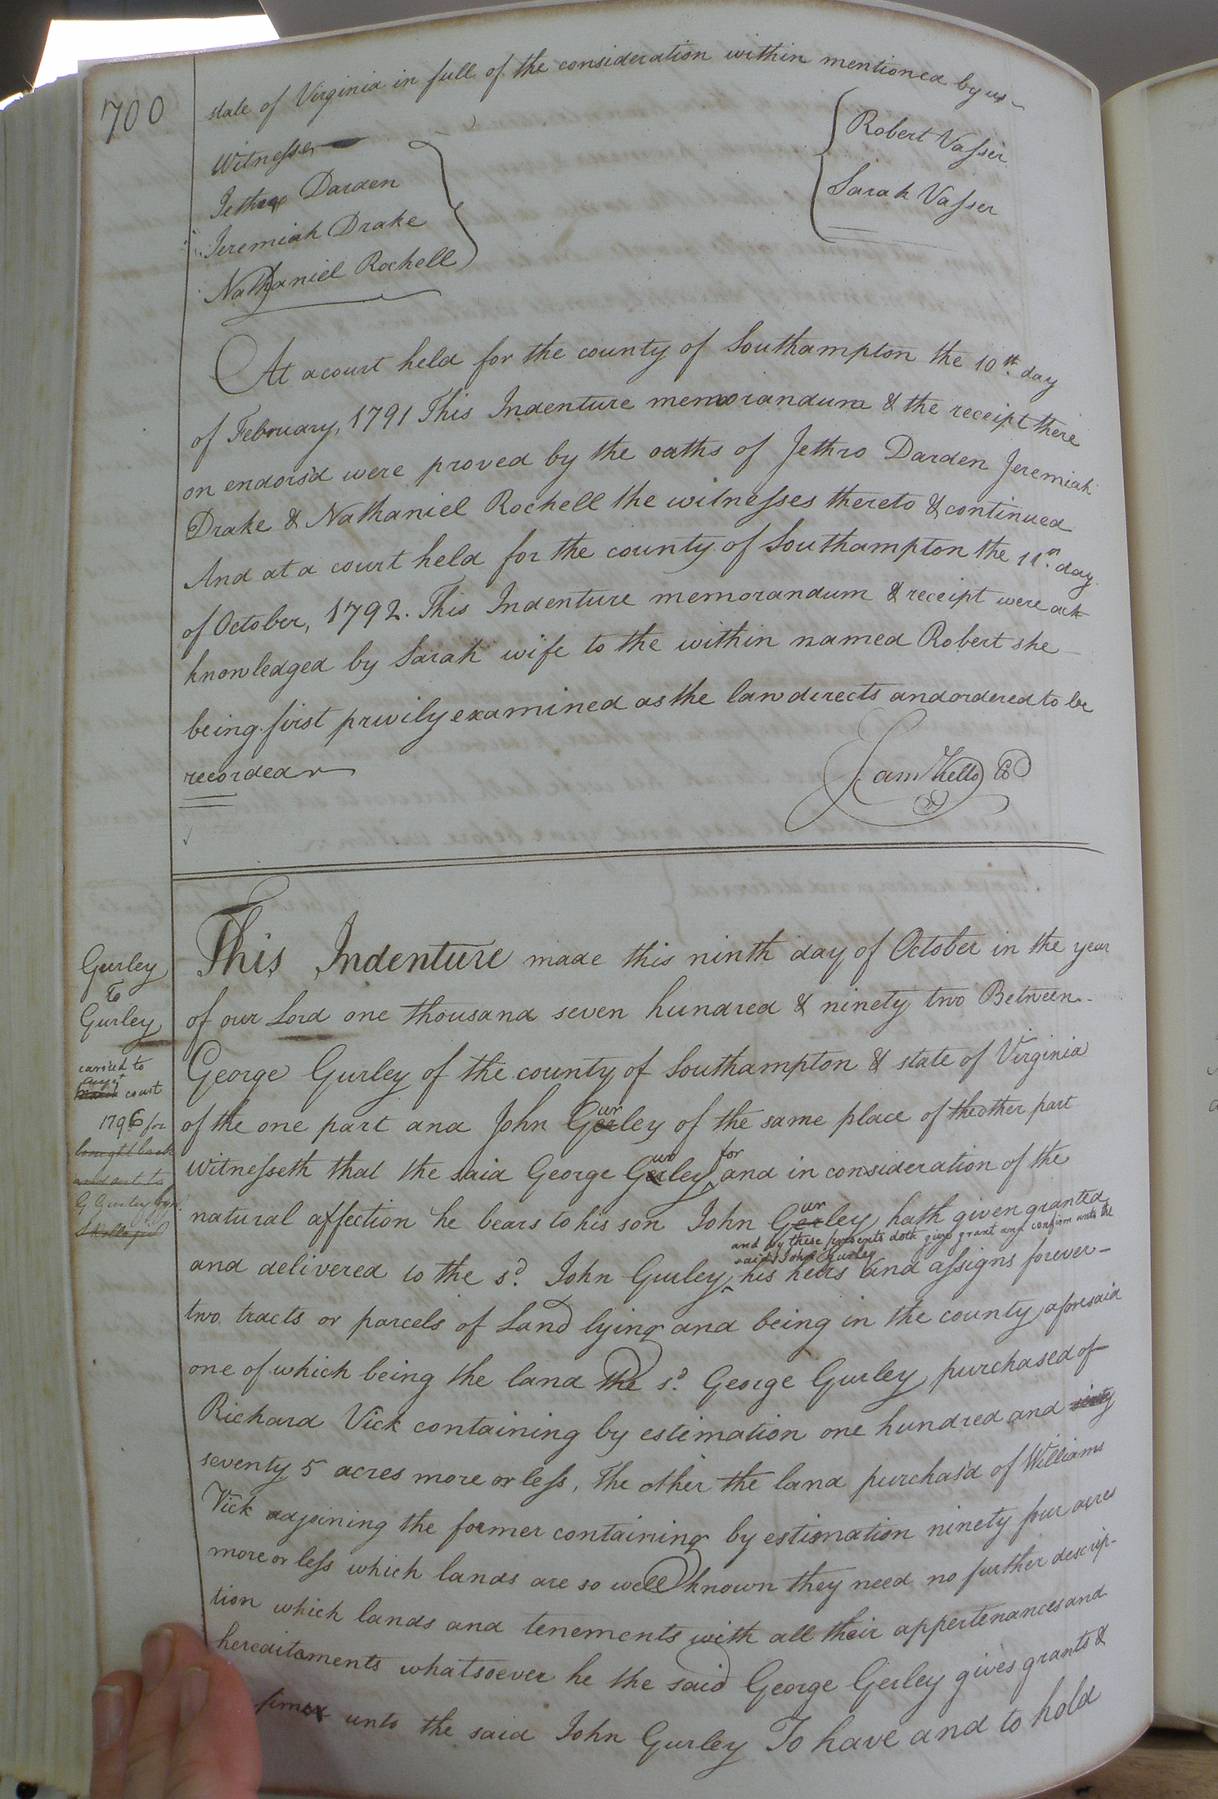 700
state of Virginia in full of the consideration within mentioned by us
Witnesses
Jethro Darden
Jeremiah Drake
Nathaniel Rochell
Robert Vasser
Sarah Vasser
At a court held for the county of Southampton the 10th. day
of February, 1791 This Indenture memorandum & the receipt there
on endors'd were proved by the oaths of Jethro Darden Jeremiah
Drake & Nathaniel Rochell the witnesses thereto & continued
And at a court held for the county of Southampton the 11th. day
of October, 1792. This Indenture memorandum & receipt were ack
knowledged by Sarah wife to the within named Robert she
being first privily examined as the law directs and ordered to be
recorded
Sam Kello
Gurley
To
Gurley
carried to
court
1796 for
This Indenture made this ninth day of October in the year
of our Lord one thousand seven hundred & ninety two Between
George Gurley of the county of Southampton & state of Virginia
of the one part and John Gurley of the same place of the other part
witnesseth that the said George Gurley for and in consideration of the
natural affection he bears to his son John Gurley hath given granted
and by these presents doth give grant and confirm unto the
said John Gurley
and delivered to the sd. John Gurley his heirs and assigns forever
two tracts or parcels of Land lying and being in the county aforesaid
one of which being the land the sd. George Gurley purchased of
Richard Vick containing by estimation one hundred and sixty
seventy 5 acres more or less, The other the land purchas'd of William
Vick adjoining the former containing by estimation ninety four acres
more or less which lands are so well known they need no further descrip-
tion which lands and tenements with all their appertenances and
hereditaments whatsoever he the said George Gerley gives grants &
unto the said John Gurley To have and to hold